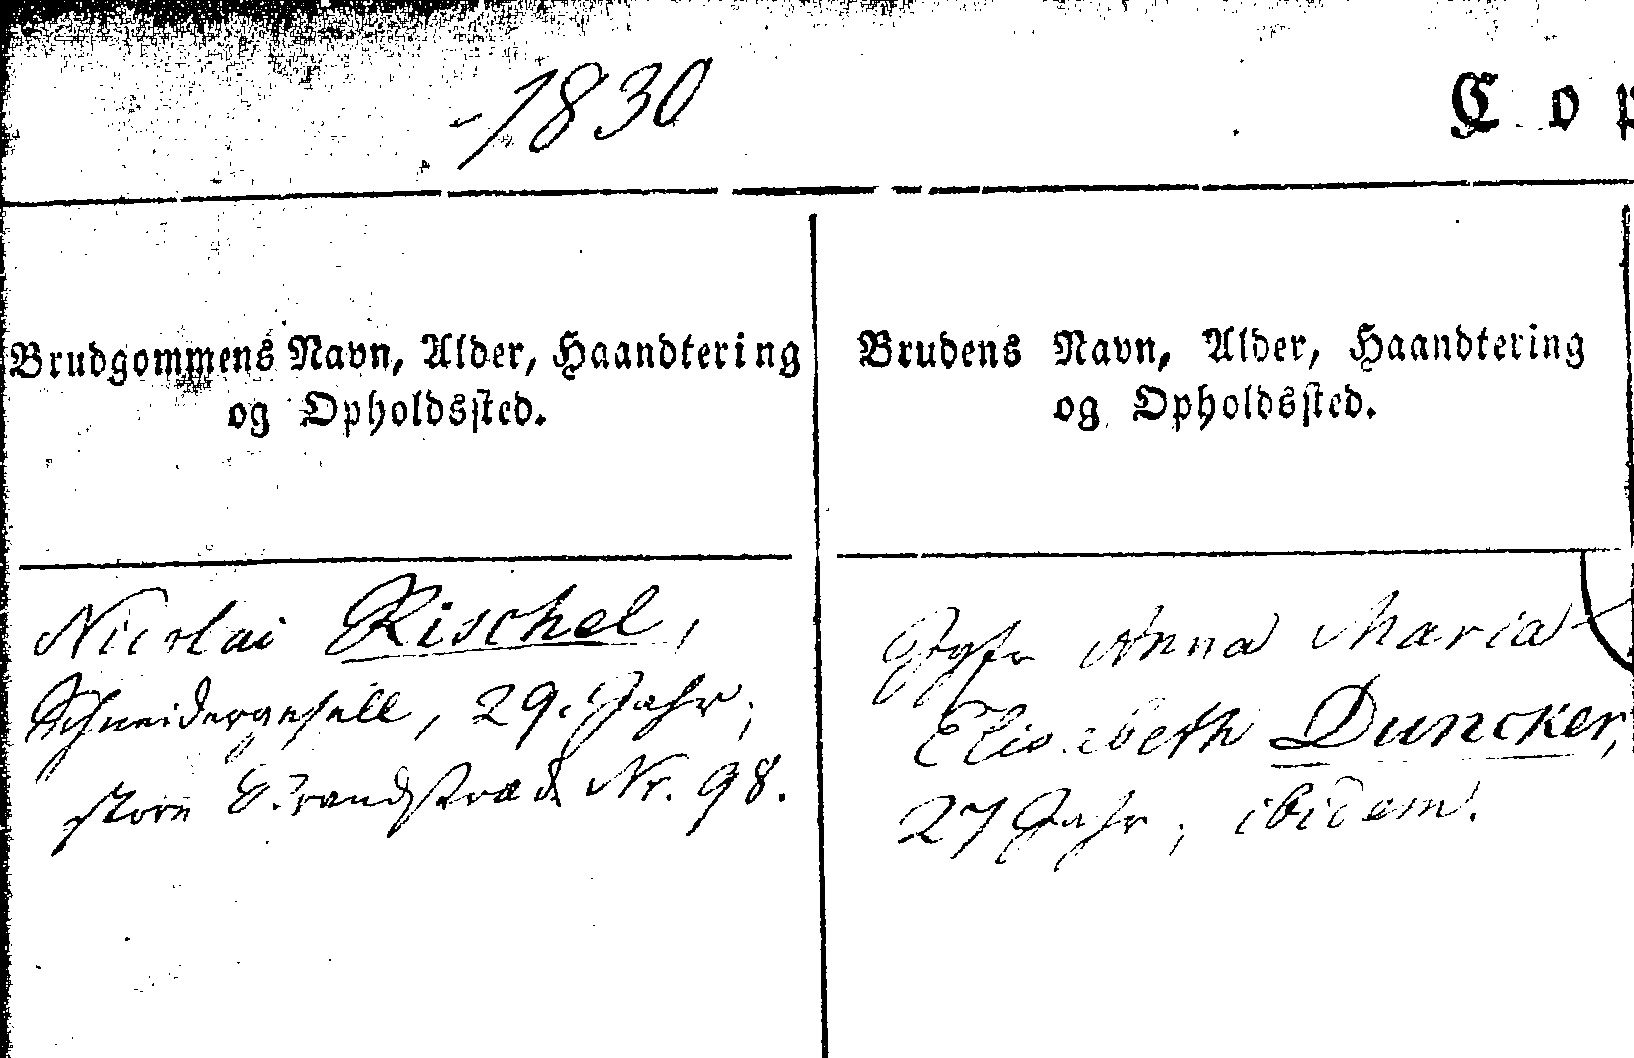 1830
Cop
Brudgommens Navn, Alder, Haandtering
og Opholdssted.
Brudens Navn, Alder, Haandtering
og Opholdssted.
Nicolai Rischel,
Schneidergesell, 29. Jahr,
store Nr. 98.
Jgfr Anna Maria
Elisabeth Duncker,
27 Jahr, ibidem.